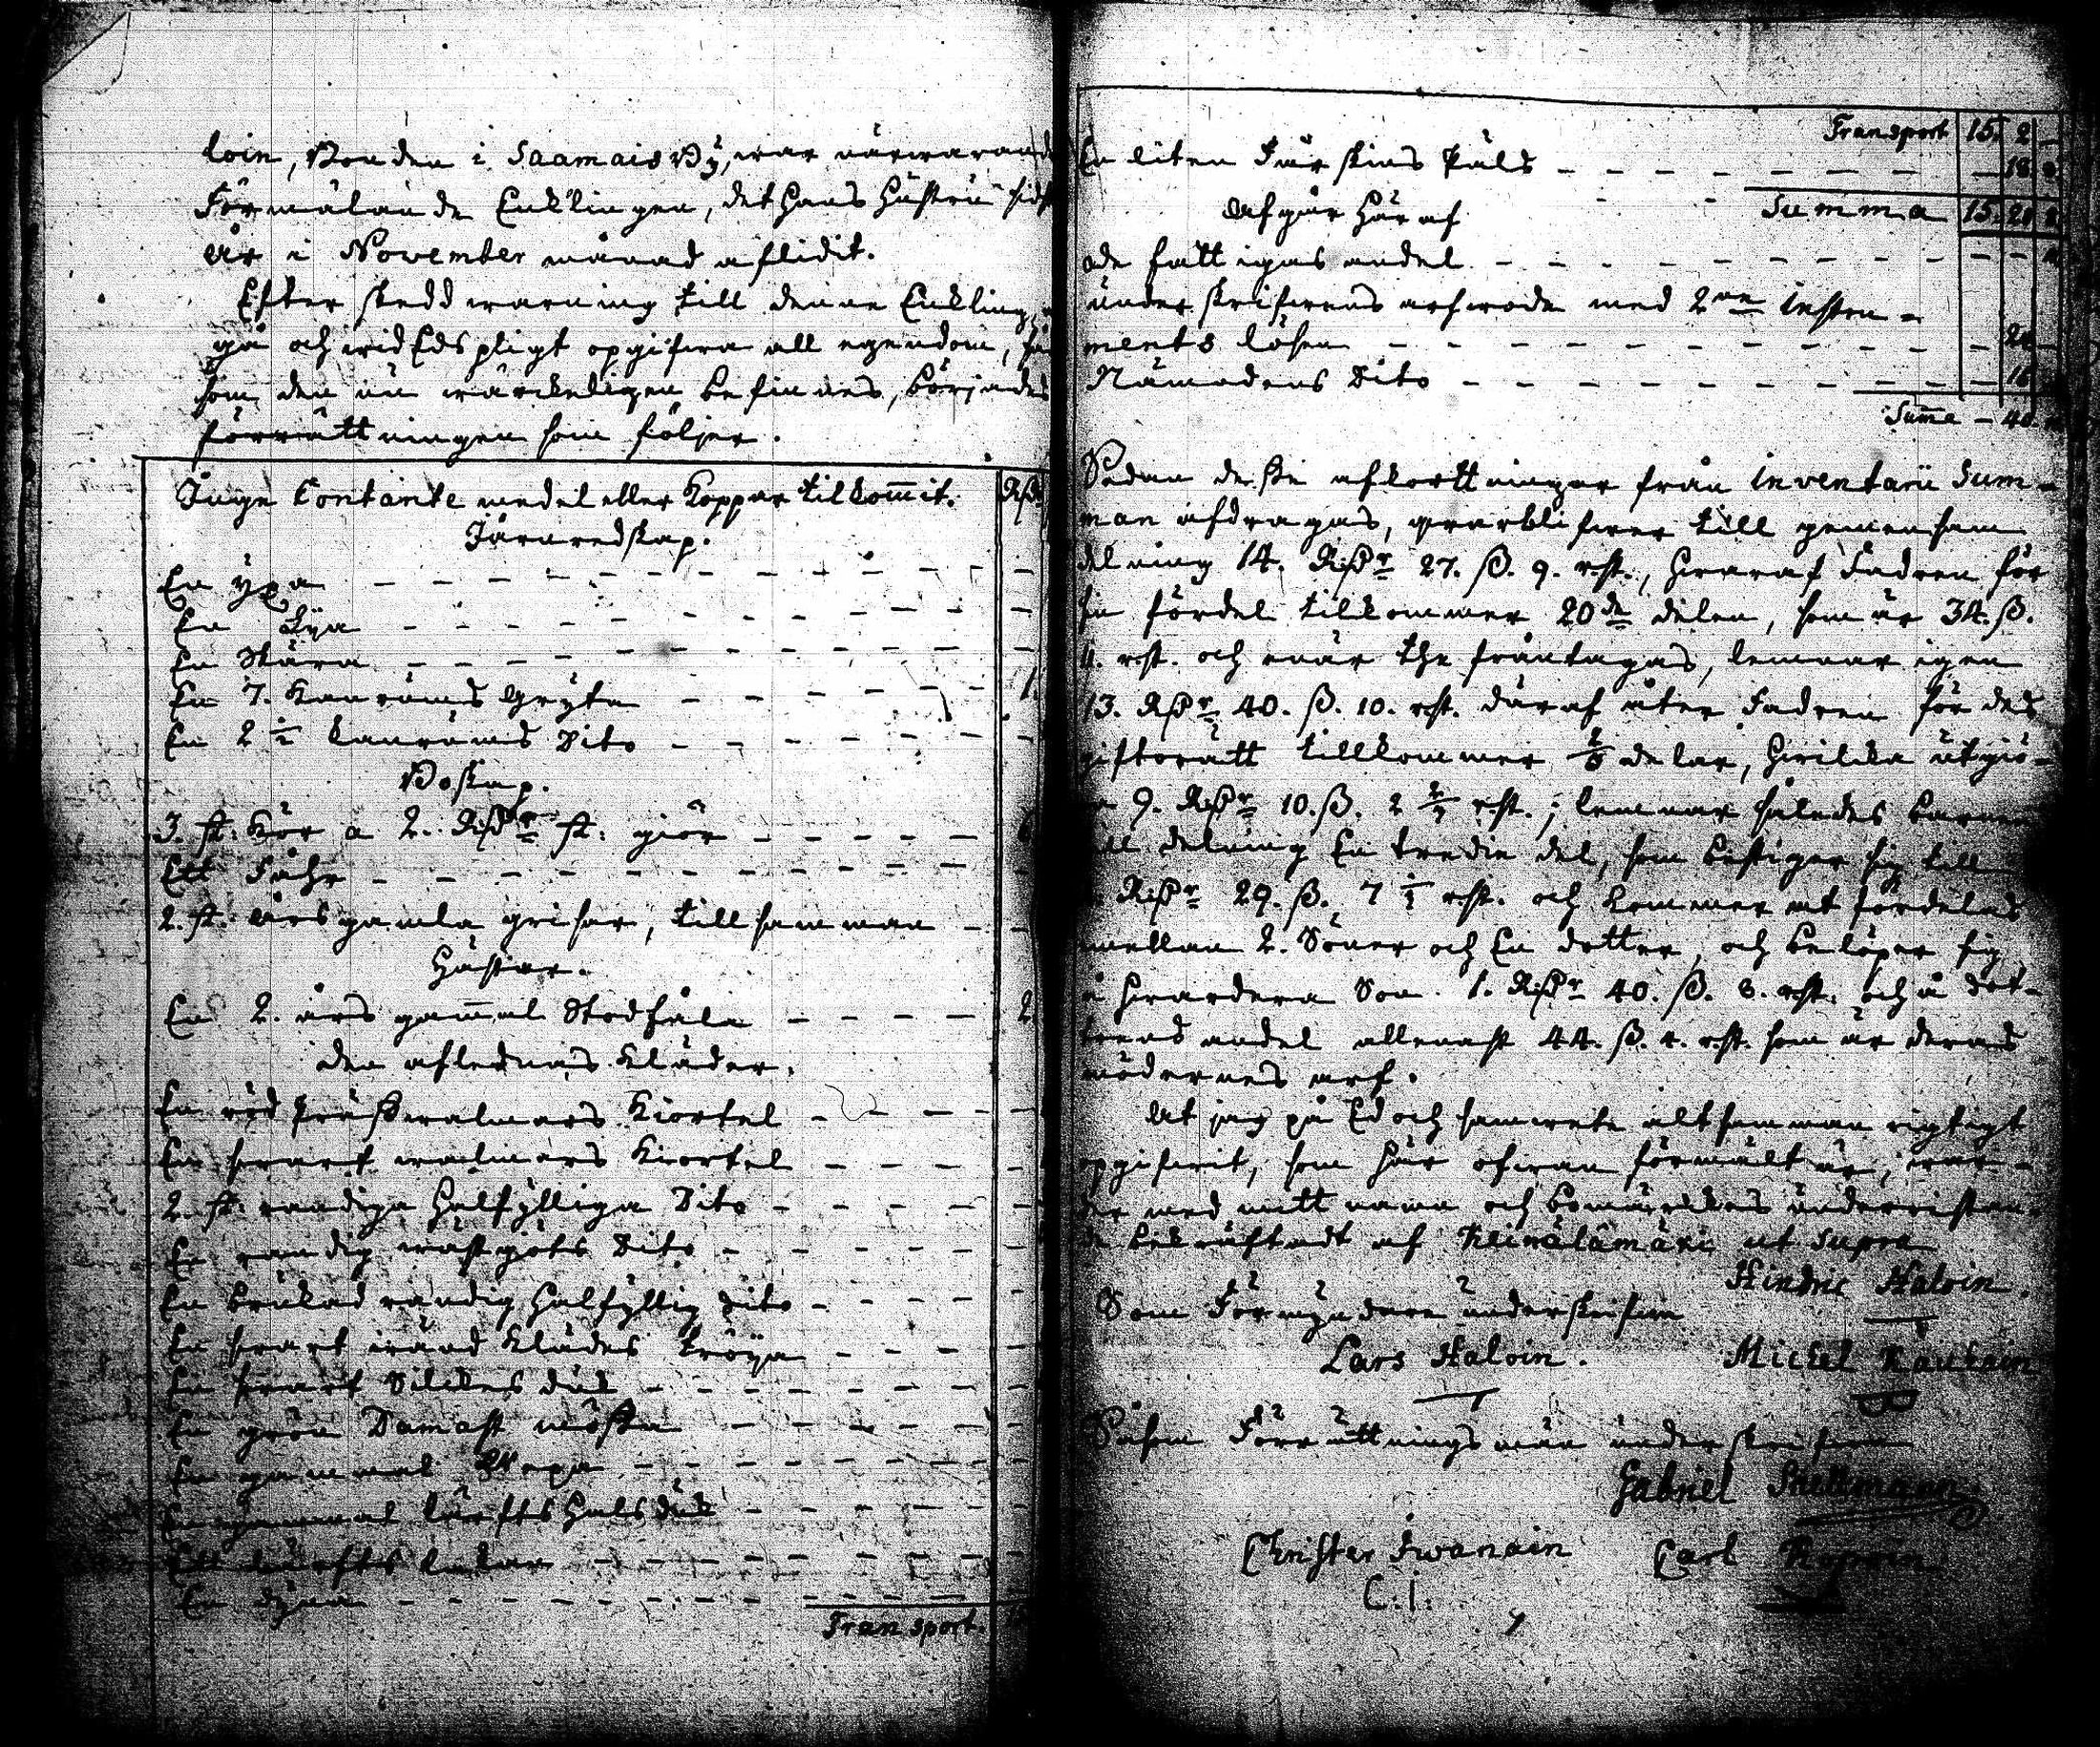 loin, Bonden i Saamais By, war närwarande
Förmälande Enklingen, det hans Hustru sidst
År i November månad aflidit.
Efter skedd warning till denne Enkling,
på och wid Eds pligt opgifwa all egendom, så
som den nu wärckeligen befinnes, börjades
förrättningen som följer.
Inge Contante medel eller Koppar tilkom̄it.
Järnredskap.
En yxa
En Lya
En Skära
En 7. Kanrums Gryta 1.
En 2 ½ kanrums Dito
Boskap.
3. st: Kor a 2. Rißdr st: giör 6
Ett Fåhr
2. st: års gamla grisar, till samman
Hästar.
En 2. års gam̄al Stodfåla 2
den aflednas Kläder.
En röd walmars Kiortel
En swart walmars Kiortel
2. st: randiga halfylliga Dito
En randig wästgiöts Dito
En brukad randig halfyllig Dito
En swart wånd Klädes tröija
En swart Silckes duk
En grön Damast mössa
En gammal
En gammal lärfts halsduk
Ett lärfts lakan
En dyna
Transport.
Transport 15. 2
En liten Fårskins Päls 18.
Summa 15. 20
Afgår häraf
de fattigas andel
underskrifwens arfwode med 2ne Instru-
ments lösen 24
Nämndens Dito 16
Sum̄a 40.
Sedan desse afkortningar från Inventarii Sum-
man afdragas, qwarblifwer till gemensam
delning 14. Rißdr 27. ß. 9. rst., hwaraf Fadren för
sin fördel tilkommer 20de delen, som är 34. ß.
11. rst. och när the fråntagas, lemnar igen
13. Rißdr 40. ß. 10. rst. däraf åter Fadren för des
giftorätt tillkommer ⅔ delar, hwilka utgiö-
9. Rißdr 10. ß. 2 rst.; lemnar således barnen
till delning En tredie del, som bestiger sig till
Rißdr 29. ß. 7 rst. och kommer at fördelas
mellan 2. Söner och En dotter, och belöper sig
å hwardera Son 1. Rißdr 40. ß. 8. rst. och å dot-
trens andel allenast 44. ß. 4. rst. som är deras
mödernes arf.
At jag på Ed och samwete altsamman rigtigt
opgifwit, som här ofwan förmält är, war-
der med mitt namn och bomärckes underristan-
de bekräftadt af ut supra
Hindric Haloin.
Som Förmyndare underskrifwa
Lars Haloin. Michel
Såsom Förrättningsmän underskrifwa
Gabriel
Christer Iwanain Carl
C. I.